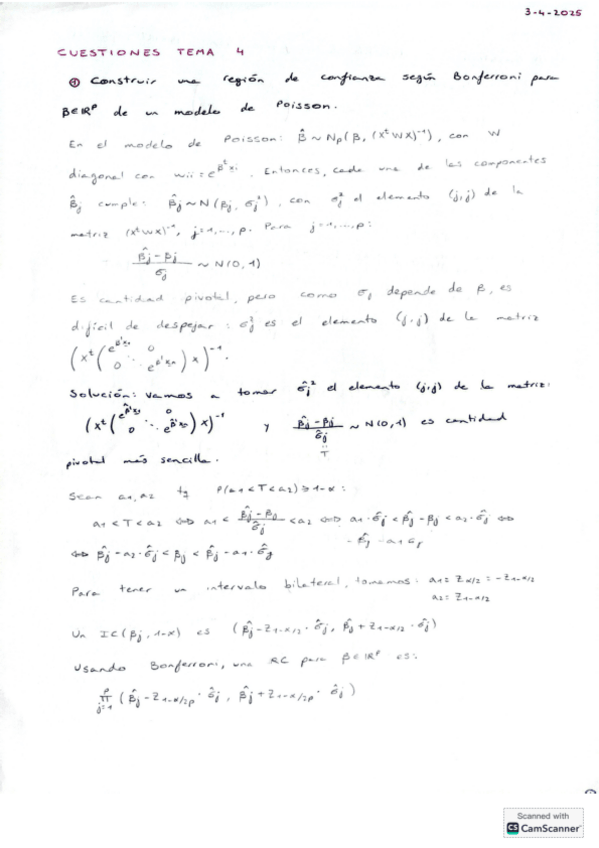 3-4-2025
CUESTIONES TEMA 4
① Construir una región de confianza según Bonferroni para
β∈ℝᵖ de un modelo de Poisson.
En el modelo de Poisson: β̂ ~ Nₚ(β, (XᵗWX)⁻¹), con W
diagonal con wii = e^{βᵗxᵢ}. Entonces, cada una de las componentes
β̂ⱼ cumple: β̂ⱼ ~ N(βⱼ, σⱼ²), con σⱼ² el elemento (j,j) de la
matriz (XᵗWX)⁻¹, j=1,...,p. Para j=1,...,p:
(β̂ⱼ - βⱼ)/σⱼ ~ N(0,1)
Es cantidad pivotal, pero como σⱼ depende de β, es
difícil de despejar: σⱼ² es el elemento (j,j) de la matriz
(Xᵗ(e^{βᵗx₁} 0 ⋱ 0 e^{βᵗxₙ})X)⁻¹.
Solución: vamos a tomar σ̂ⱼ² el elemento (j,j) de la matriz:
(Xᵗ(e^{β̂ᵗx₁} 0 ⋱ 0 e^{β̂ᵗxₙ})X)⁻¹ y (β̂ⱼ - βⱼ)/σ̂ⱼ ~ N(0,1) es cantidad
T
pivotal más sencilla.
Sean a₁, a₂ tq P(a₁<T<a₂) ≥ 1-α:
a₁<T<a₂ ⇔ a₁ < (β̂ⱼ - βⱼ)/σ̂ⱼ < a₂ ⇔ a₁·σ̂ⱼ < β̂ⱼ - βⱼ < a₂·σ̂ⱼ ⇔
⇔ β̂ⱼ - a₂·σ̂ⱼ < βⱼ < β̂ⱼ - a₁·σ̂ⱼ
Para tener un intervalo bilateral, tomamos: a₁ = z_{α/2} = -z_{1-α/2}
a₂ = z_{1-α/2}
Un IC(βⱼ, 1-α) es (β̂ⱼ - z_{1-α/2}·σ̂ⱼ, β̂ⱼ + z_{1-α/2}·σ̂ⱼ)
Usando Bonferroni, una RC para β∈ℝᵖ es:
∏_{j=1}^{p} (β̂ⱼ - z_{1-α/2p}·σ̂ⱼ, β̂ⱼ + z_{1-α/2p}·σ̂ⱼ)
Scanned with
CS CamScanner